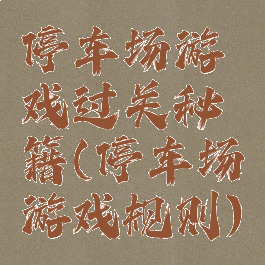 停车场游
戏过关秘
籍(停车场
游戏规则)